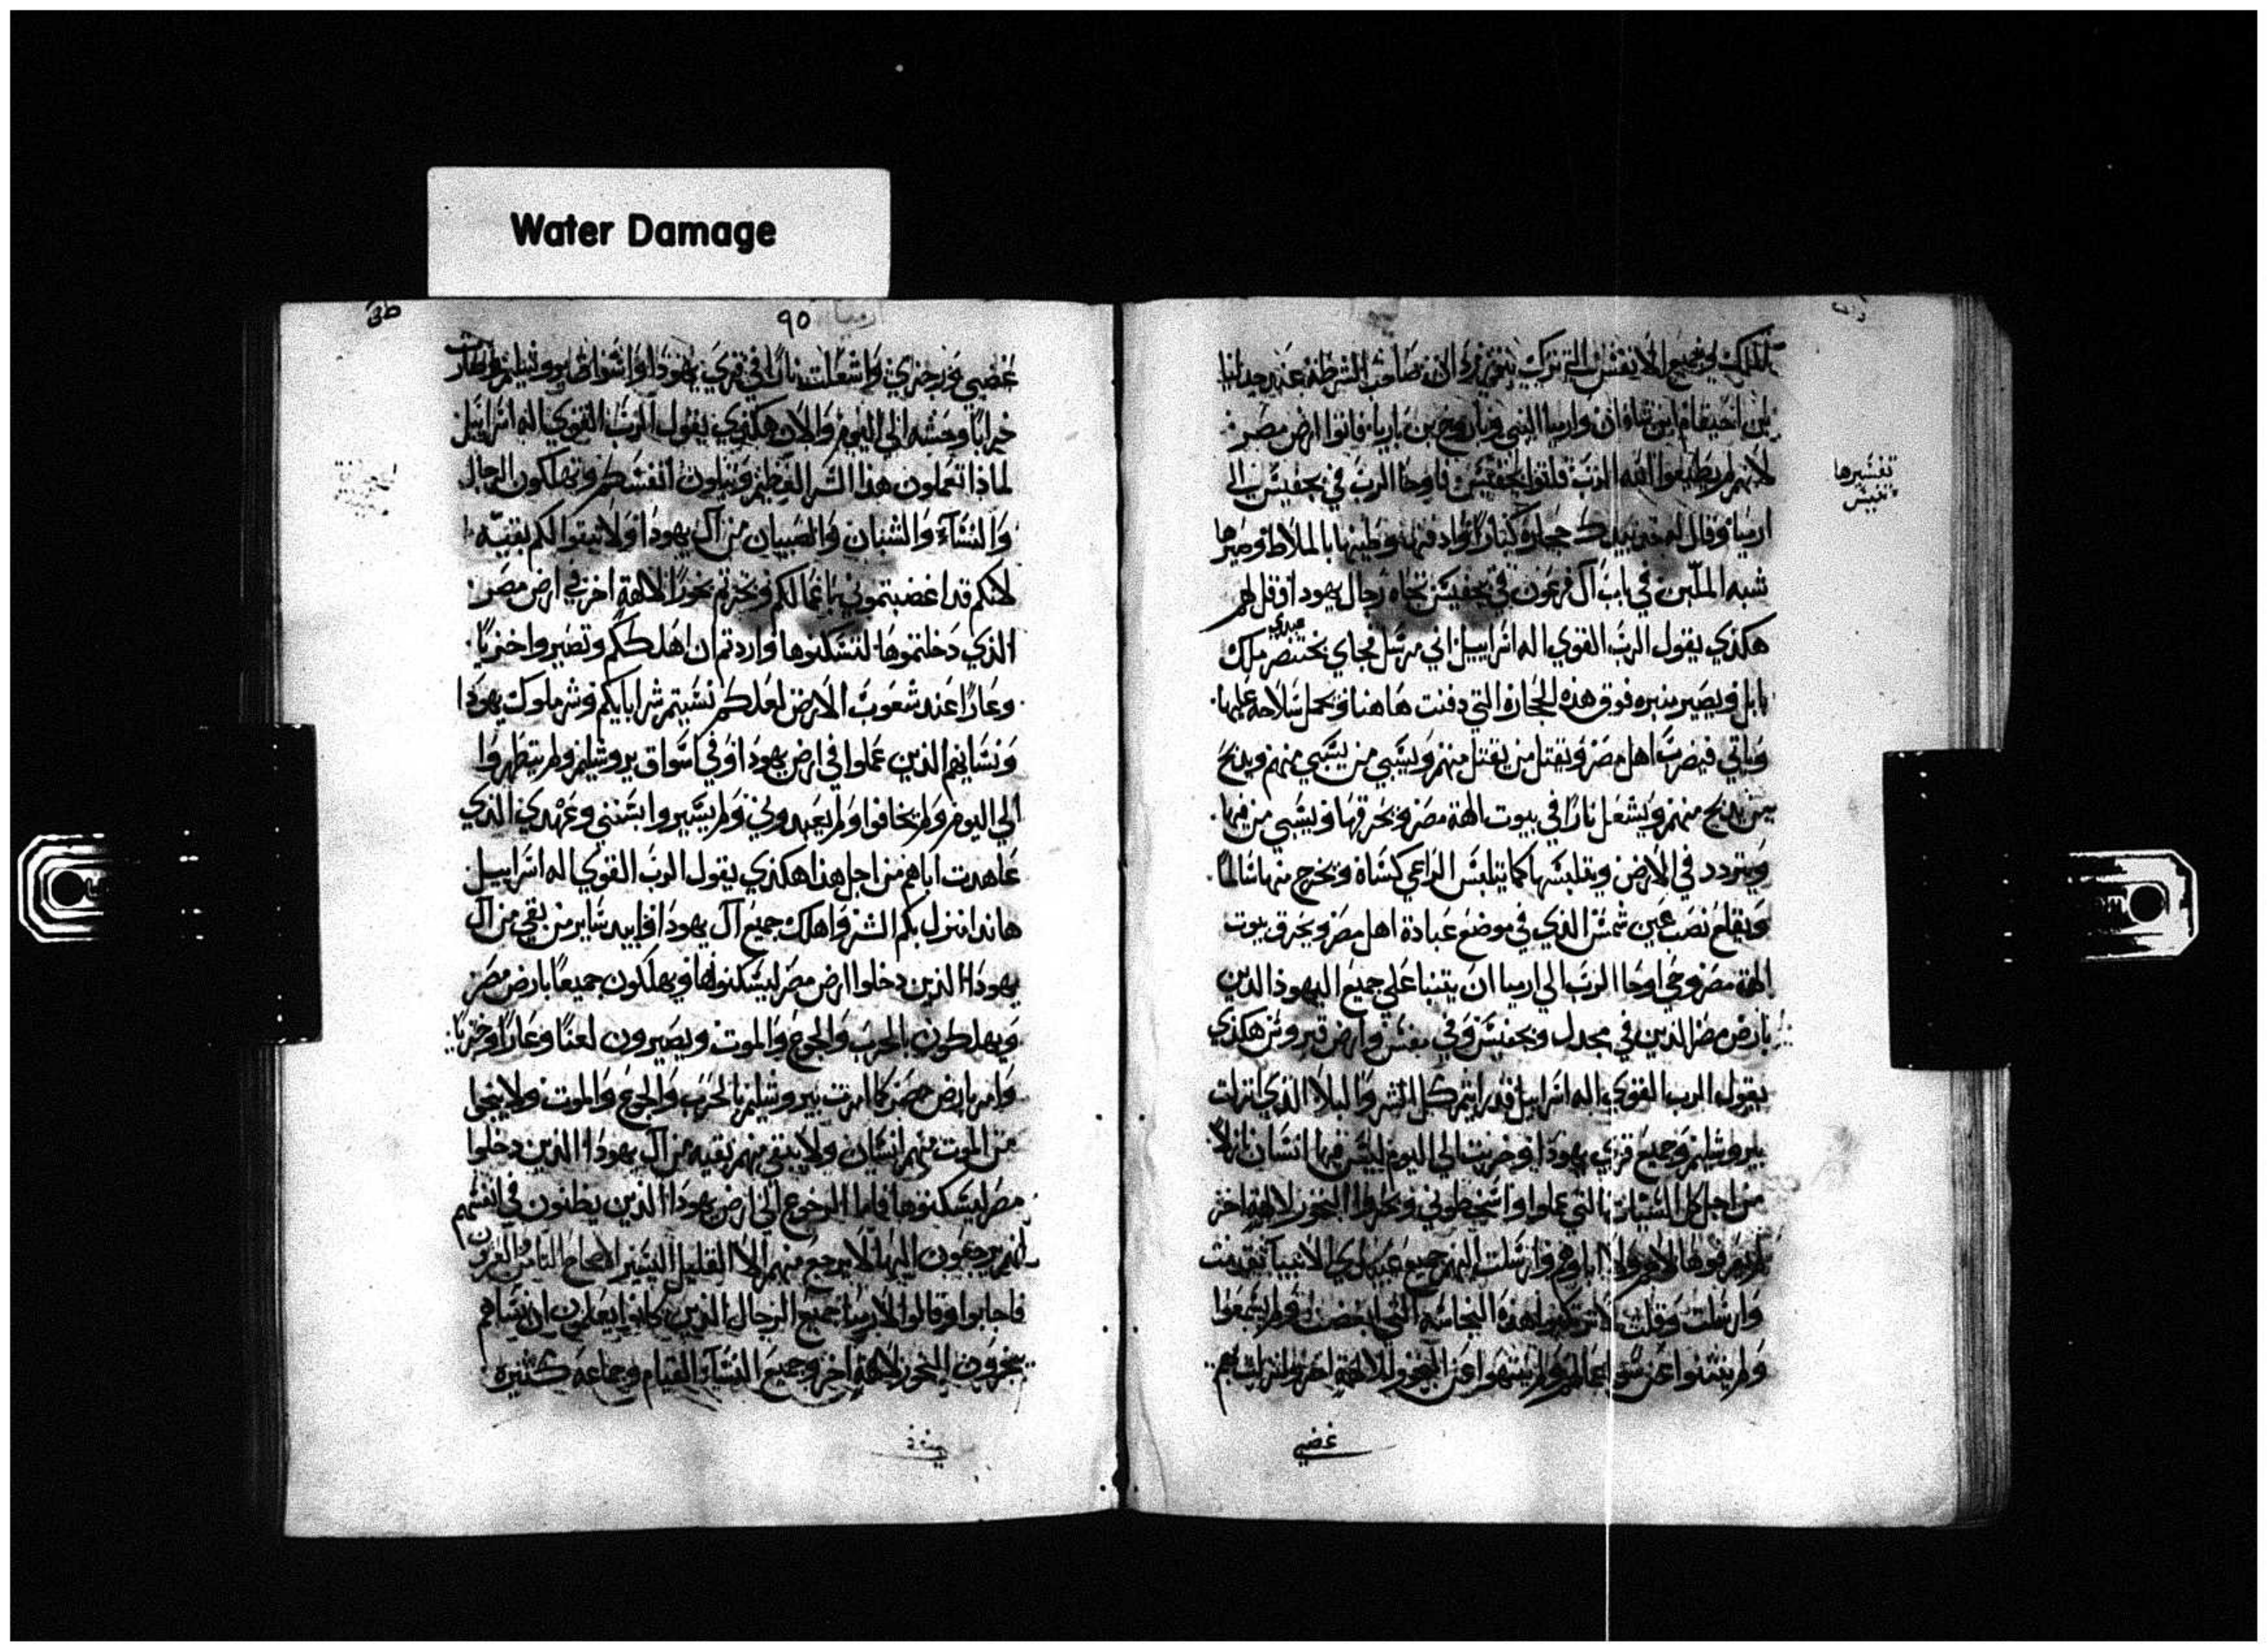 Water Damage
الملك وجميع الانفس التي ترك نبوزردان صاحب الشرطة عند جدليا
بن احيقام ابن شافان وارميا النبي وباروخ بن ناريا فاتوا ارض مصر
لانهم لم يطيعوا الله الرب فلما اتوا تحفيس فاوحا الرب في تحفيس الى
ارميا وقال له خذ بيدك حجارة كبارا وادفنها وطينها بالملاط وصيرها
شبه الملبن في باب آل فرعون في تحفيس تجاه رجال يهودا وقل لهم
هكذي يقول الرب القوي اله اسراييل اني مرسل فجاي بختنصر عبدي ملك
بابل ويصير منبره فوق هذه الحجارة التي دفنت هاهنا ويجعل سلاحه عليها
وياتي فيضرب اهل مصر ويقتل من يقتل منهم ويسبي من يسبي منهم ويذبح
من يذبح منهم ويشعل نارا في بيوت الهة مصر ويحرقها ويسبي من فيها
ويتردد في الارض ويتلبسها كما يتلبس الراعي كساه ويخرج منها سالما
ويقلع نصب عين شمس الذي في موضع عبادة اهل مصر ويحرق بيوت
الهة مصر وحي اوحا الرب الي ارميا ان يتنبا علي جميع اليهود الذين
بارض مصر الذين في مجدل وتحفيس وفي منفس وارض قبروس هكذي
يقول الرب القوي اله اسراييل قد رايتم كل الشر والبلا الذي انزلت
بيروشليم وجميع قري يهودا وخربت الي اليوم ليس فيها انسان نازلا
من اجل كل السيات التي عملوا واسخطوني وبخروا البخور لالهة اخر
لم يعرفوها لا هم ولا اباوهم وارسلت اليهم جميع عبيدي الانبيا تقدمت
وارسلت وقلت لا ترتكبوا هذه النجاسة التي ابغضت ولم يسمعوا
ولم ينثنوا عن سو اعمالهم ولم ينتهوا عن البخور للالهة اخر ولنزل بهم
غضبي
تفسيرها
منفيس
٩٥
ارميا
غضبي ورجزي واشعلت نارا في قري يهودا واسواق يروشليم وصارت
خرابا وحشه الي اليوم والان هكذي يقول الرب القوي اله اسراييل
لماذا تعملون هذا الشر العظيم وتبلون انفسكم وتهلكون الرجال
والنساء والشبان والصبيان من آل يهودا ولا تبقوا لكم بقيه
لانكم قد اغضبتموني باعمالكم وبخرتم بخورا لالهة اخر في ارض مصر
الذي دخلتموها لتسكنوها واردتم ان اهلككم وتصيروا خزيا
وعارا عند شعوب الارض لعلكم نسيتم شر ابايكم وشر ملوك يهودا
ونسايهم الذين عملوا في ارض يهودا وفي اسواق يروشليم ولم يتطهروا
الي اليوم ولم يخافوا ولم يعبدوني ولم يسيروا بسنني وعهدي الذي
عاهدت اباهم من اجل هذا هكذي يقول الرب القوي اله اسراييل
هانذا انزل بكم الشر واهلك جميع آل يهودا وابيد ساير من بقي من آل
يهودا الذين دخلوا ارض مصر ليسكنوها ويهلكون جميعا بارض مصر
ويهلكون بالحرب والجوع والموت ويصيرون لعنا وعارا وخزيا
وامر بارض مصر كما امرت بيروشليم بالحرب والجوع والموت ولا ينجا
من الموت منهم انسان ولا يبقي منهم بقيه من آل يهودا الذين دخلوا
مصر ليسكنوها فاما الرجوع الي ارض يهودا الذين يظنون في انفسهم
انهم يرجعون اليها لا يرجع منهم الا القليل اليسير الاصحاح الثامن العشرون
فاجابوا وقالوا لارميا جميع الرجال الذين كانوا يعلمون ان نساهم
يبخرون البخور لالهة اخر وجميع النساء القيام وجماعة كثيره